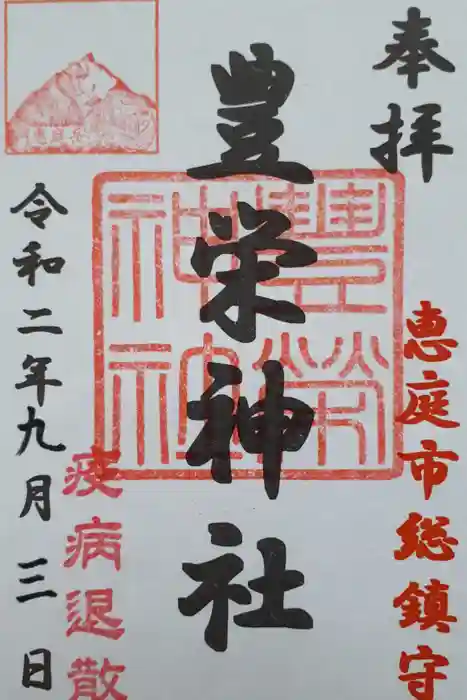 奉拝
恵庭市総鎮守
豊栄神社
豊榮神社
恵庭岳
令和二年九月三日
疫病退散